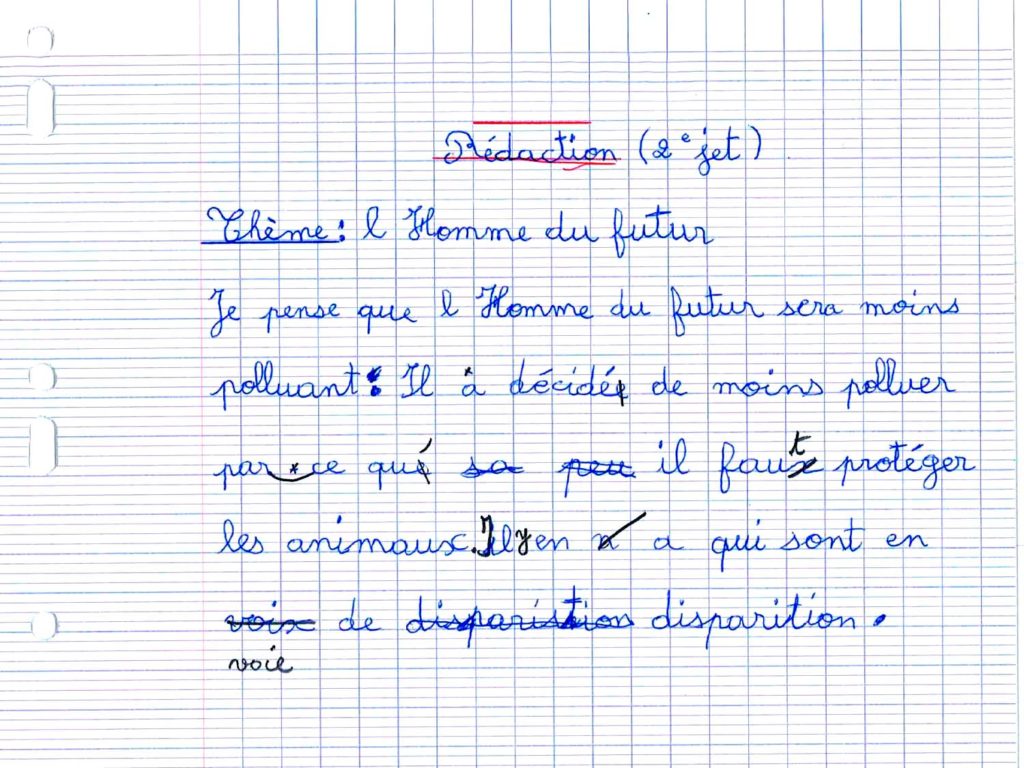 Rédaction (2e jet)
Thème : l Homme du futur
Je pense que l Homme du futur sera moins
polluant : Il à décidé de moins polluer
par ce qu' sa peu il faut protéger
les animaux. Il y en a qui sont en
voix de disparistion disparition.
voie